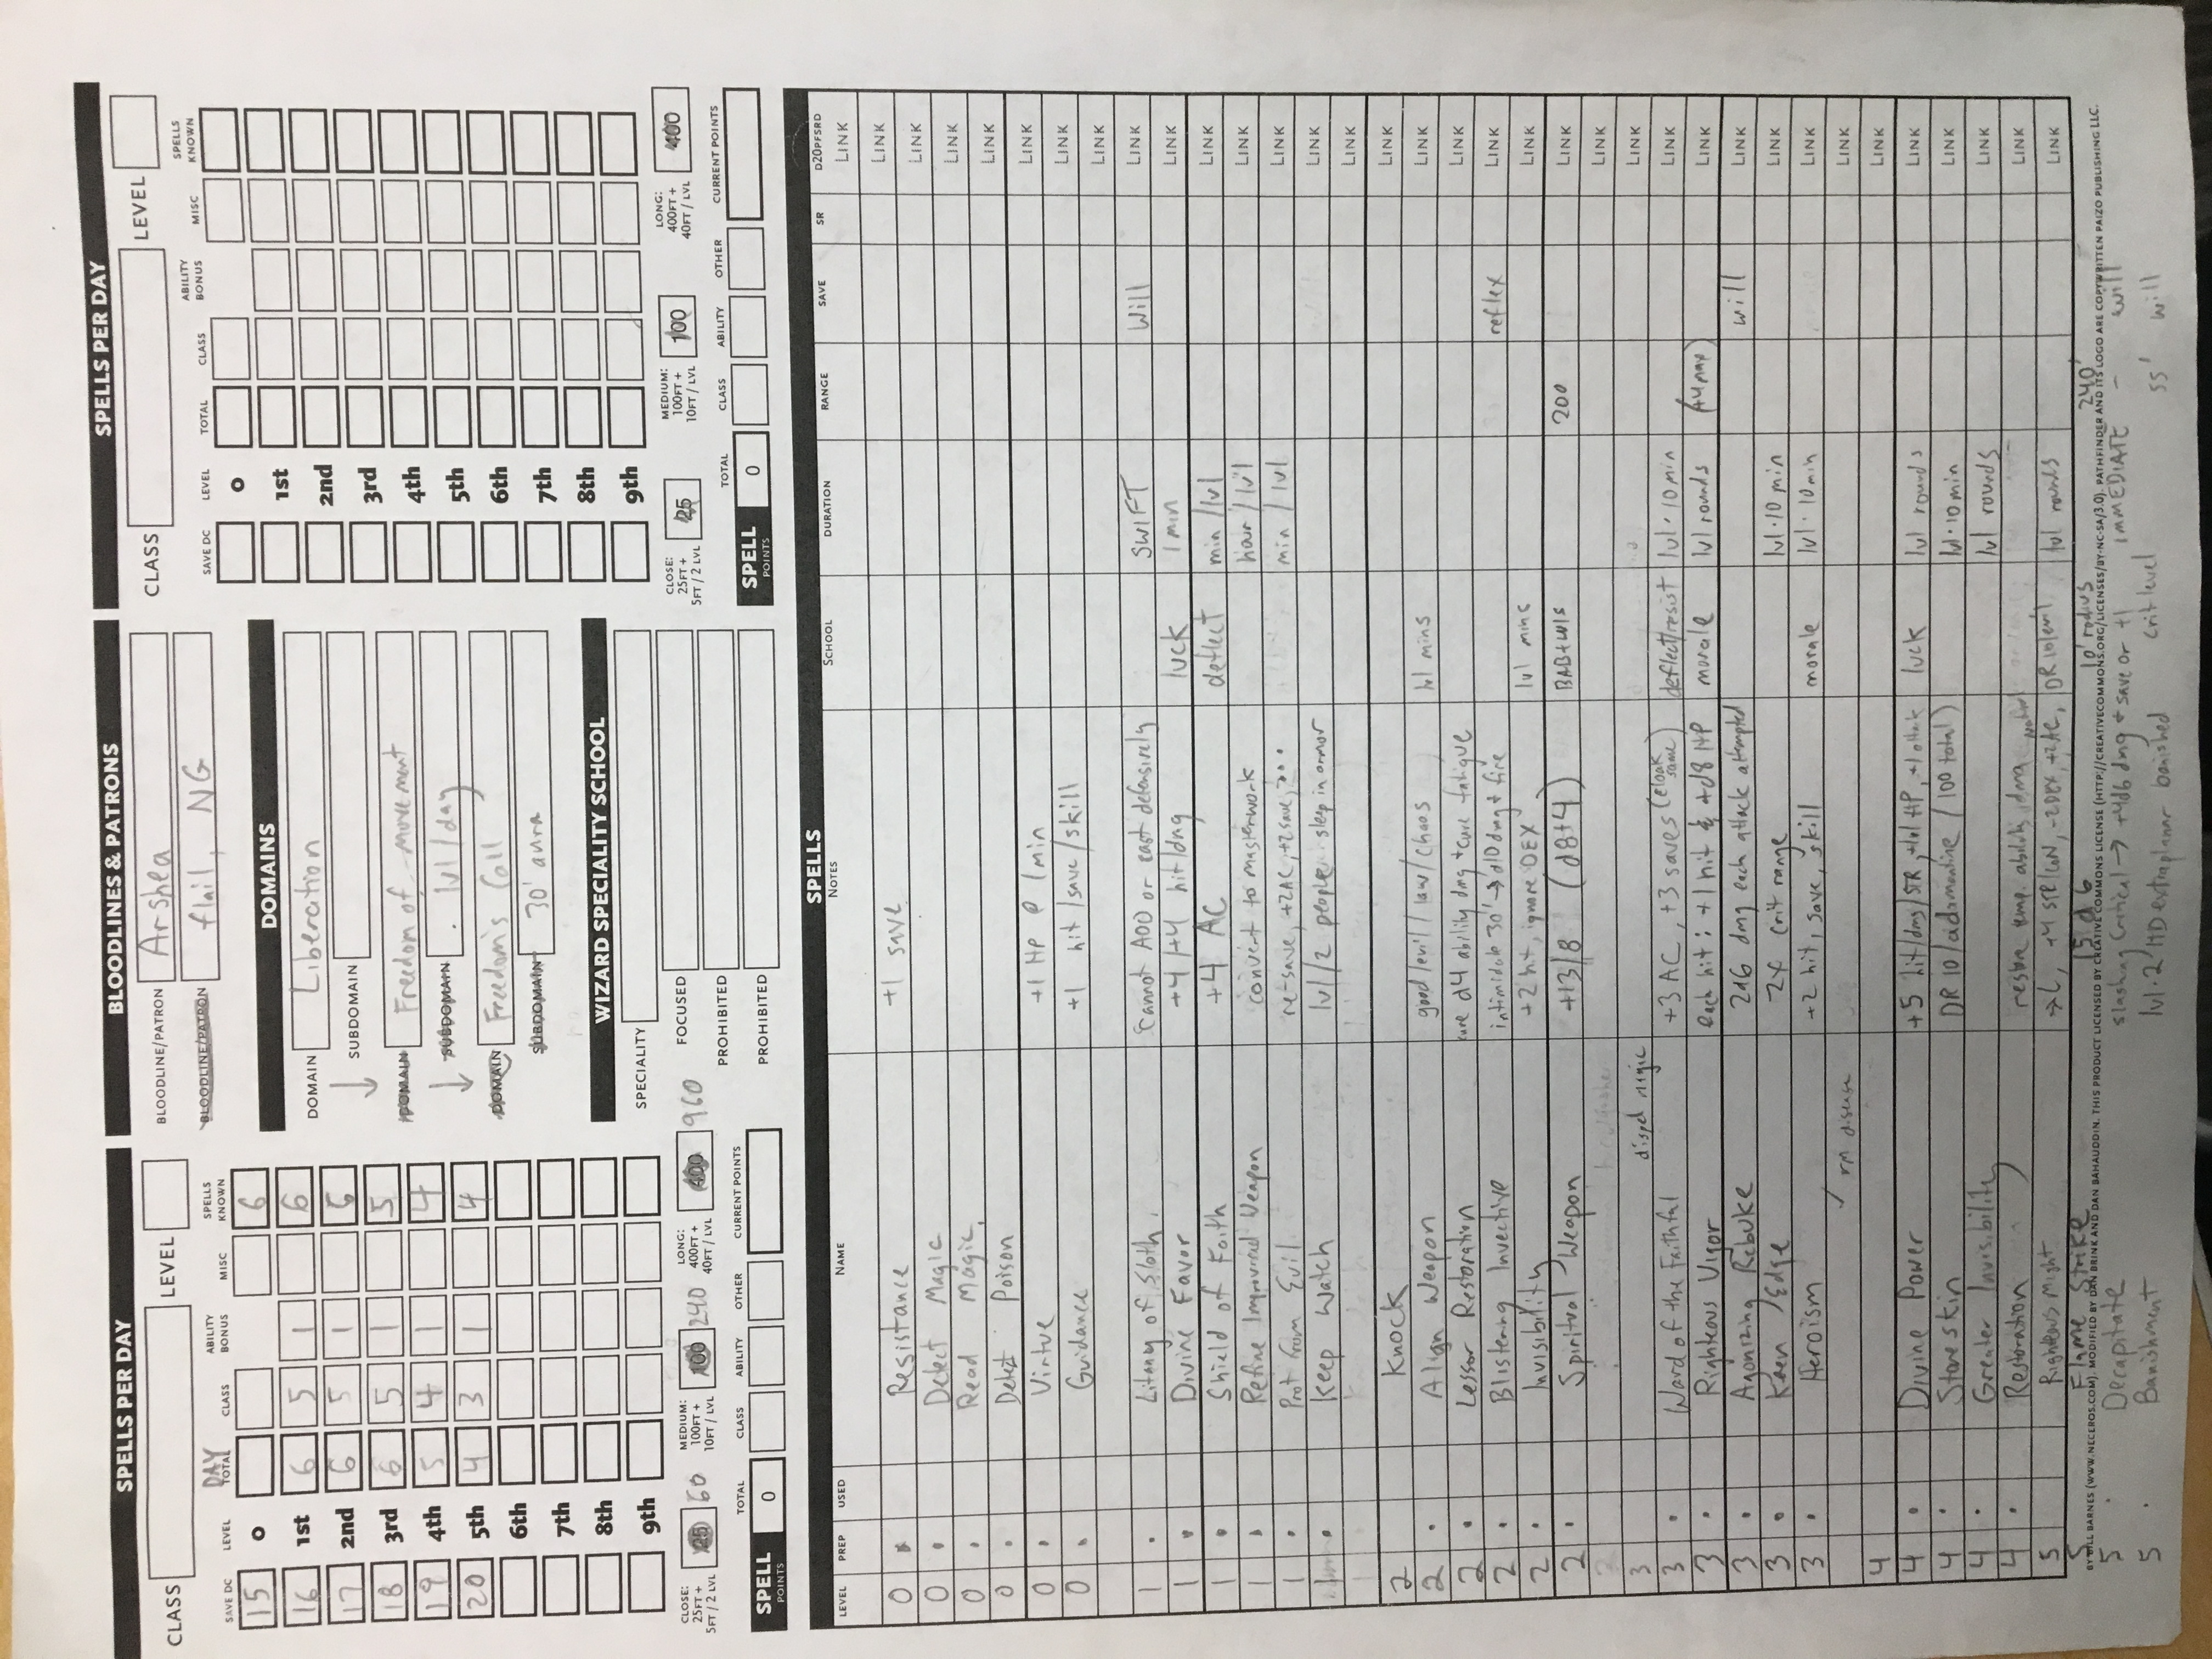 SPELLS PER DAY
CLASS LEVEL
DAY
SAVE DC LEVEL TOTAL CLASS ABILITY BONUS MISC SPELLS KNOWN
15 0 6
16 1st 6 5 1 6
17 2nd 6 5 1 6
18 3rd 6 5 1 5
19 4th 5 4 1 4
20 5th 4 3 1 4
6th
7th
8th
9th
CLOSE: 25FT + 5FT / 2 LVL 25 60 MEDIUM: 100FT + 10FT / LVL 100 240 LONG: 400FT + 40FT / LVL 400 960
TOTAL CLASS ABILITY OTHER CURRENT POINTS
SPELL POINTS 0
BLOODLINES & PATRONS
BLOODLINE/PATRON Arshea
BLOODLINE/PATRON flail, NG
DOMAINS
DOMAIN Liberation
SUBDOMAIN
DOMAIN Freedom of movement
SUBDOMAIN lvl/day
DOMAIN Freedom's Call
SUBDOMAIN 30' aura
WIZARD SPECIALITY SCHOOL
SPECIALITY
FOCUSED
PROHIBITED
PROHIBITED
SPELLS PER DAY
CLASS LEVEL
SAVE DC LEVEL TOTAL CLASS ABILITY BONUS MISC SPELLS KNOWN
0
1st
2nd
3rd
4th
5th
6th
7th
8th
9th
CLOSE: 25FT + 5FT / 2 LVL 25 MEDIUM: 100FT + 10FT / LVL 100 LONG: 400FT + 40FT / LVL 400
TOTAL CLASS ABILITY OTHER CURRENT POINTS
SPELL POINTS 0
SPELLS
LEVEL PREP USED NAME NOTES SCHOOL DURATION RANGE SAVE SR D20PFSRD
LINK
LINK
0 Resistance +1 save LINK
0 Detect Magic LINK
0 Read Magic LINK
0 Detect Poison LINK
0 Virtue +1 HP @ 1min LINK
0 Guidance +1 hit/save/skill LINK
LINK
1 Litany of Sloth cannot AOO or cast defensively SWIFT Will LINK
1 Divine Favor +4/+4 hit/dmg luck 1 min LINK
1 Shield of Faith +4 AC deflect min/lvl LINK
1 Refine Improvised Weapon convert to masterwork hour/lvl LINK
1 Prot from Evil re-save, +2AC, +2save, ... min/lvl LINK
1 Keep Watch lvl/2 people sleep in armor LINK
LINK
2 Knock LINK
2 Align Weapon good/evil/law/chaos lvl mins LINK
2 Lesser Restoration cure d4 ability dmg + cure fatigue LINK
2 Blistering Invective intimidate 30' → d10 dmg + fire reflex LINK
2 Invisibility +2 hit, ignore DEX lvl mins LINK
2 Spiritual Weapon +13/8 (d8+4) BAB+WIS 200 LINK
2 LINK
3 dispel magic LINK
3 Ward of the Faithful +3 AC, +3 saves (cloak same) deflect/resist lvl·10 min LINK
3 Righteous Vigor each hit: +1 hit & +d8 HP morale lvl rounds (+4 max) LINK
3 Agonizing Rebuke 2d6 dmg each attack attempted will LINK
3 Keen Edge 2x crit range lvl·10 min LINK
3 Heroism +2 hit, save, skill morale lvl·10min LINK
✓ rm disease LINK
4 LINK
4 Divine Power +5 hit/dmg/STR, +lvl HP, +1 attack luck lvl rounds LINK
4 Stoneskin DR 10/adamantine (100 total) lvl·10 min LINK
4 Greater Invisibility lvl rounds LINK
4 Restoration restore temp. ability dmg LINK
5 Righteous Might → L, +4 STR/CON, -2DEX, +2AC, natural DR 10/evil lvl rounds LINK
5 Flame Strike 15 d6 10' radius 240'
BY BILL BARNES (WWW.NECEROS.COM). MODIFIED BY DAN BRINK AND DAN BAHAUDDIN. THIS PRODUCT LICENSED BY CREATIVE COMMONS LICENSE (HTTP://CREATIVECOMMONS.ORG/LICENSES/BY-NC-SA/3.0). PATHFINDER AND ITS LOGO ARE COPYWRITTEN PAIZO PUBLISHING LLC.
5 Decapitate slashing Critical → +4d6 dmg + save or +1 crit level IMMEDIATE - will
5 Banishment lvl·2 HD extraplanar banished 55' will